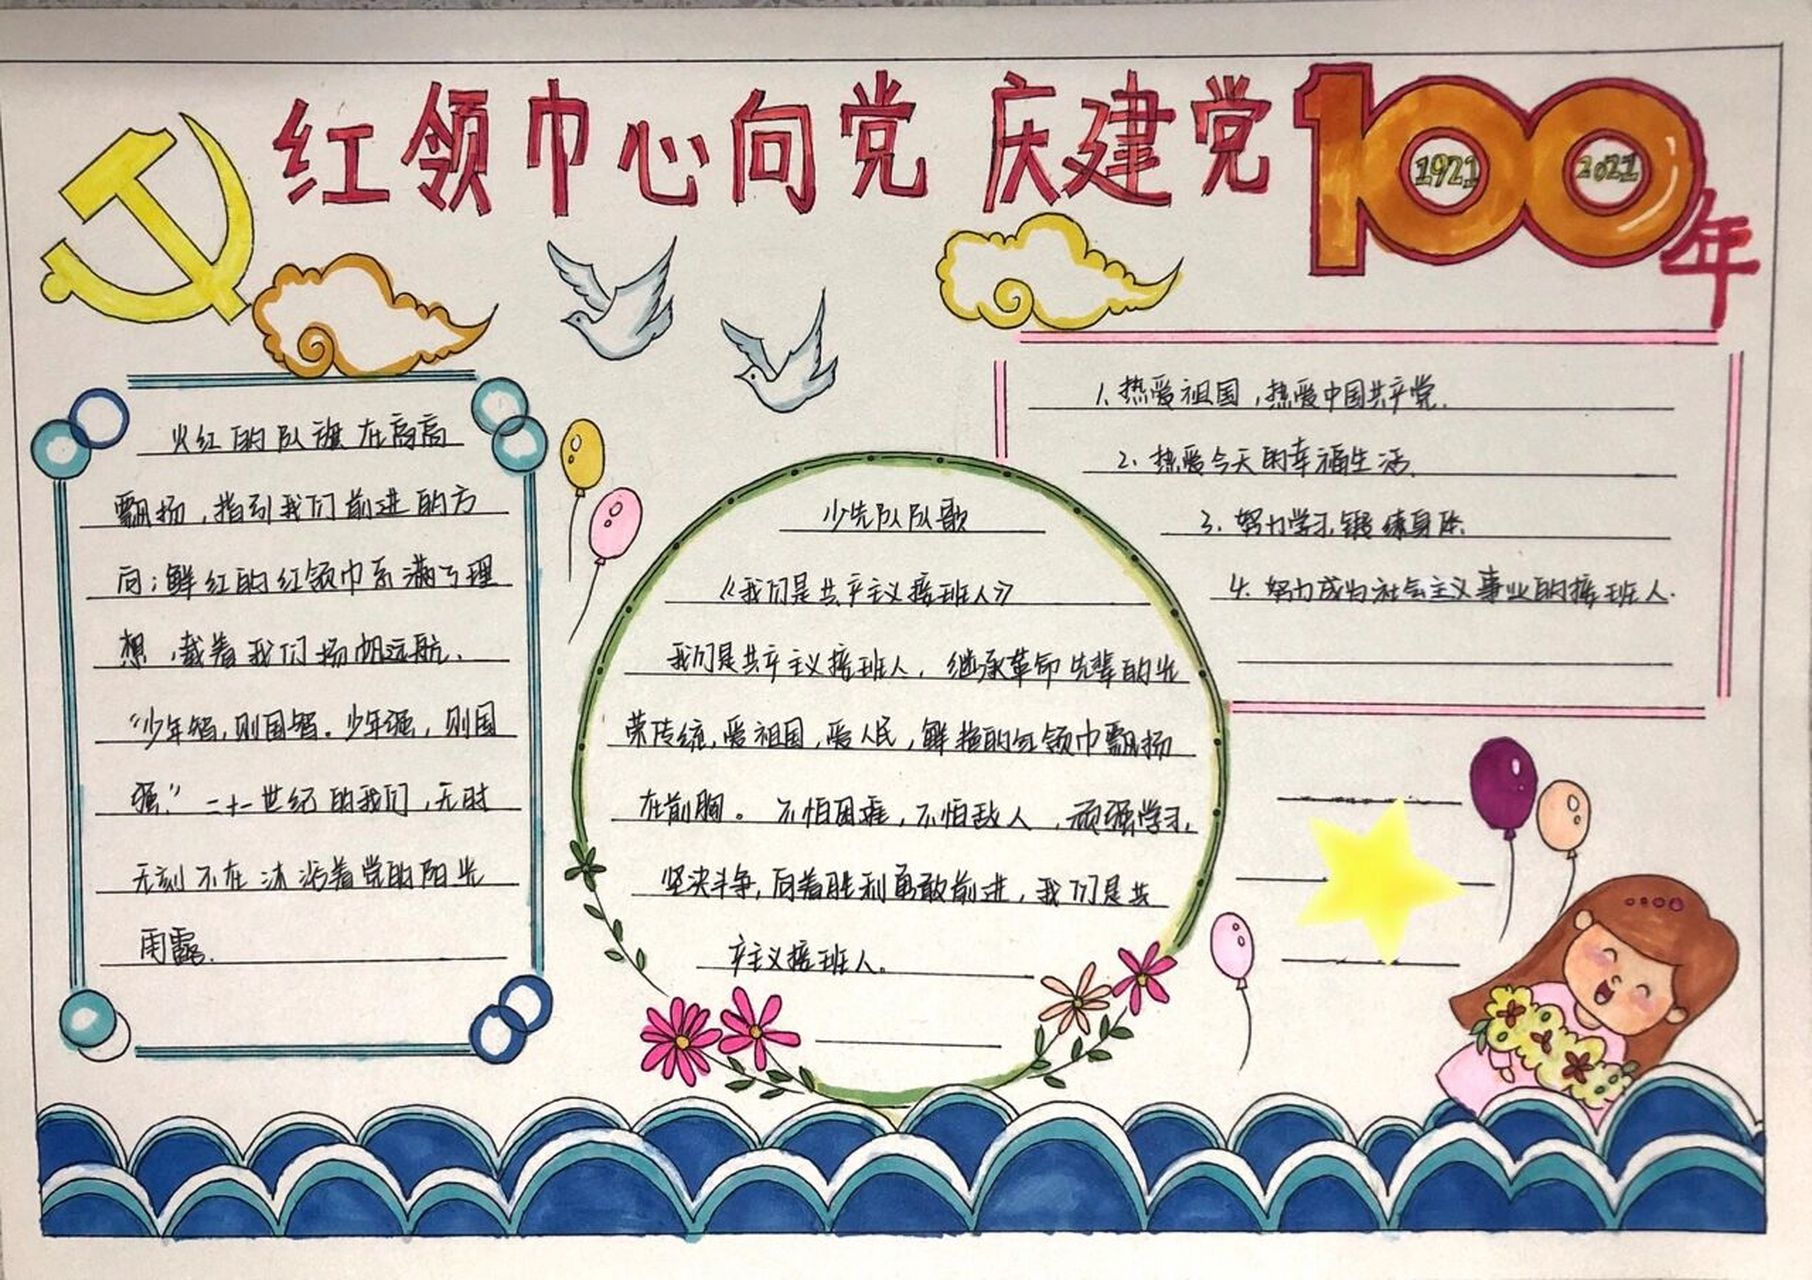 红领巾心向党 庆建党100年
1921 2021
火红的队旗在高高
飘扬，指引我们前进的方
向；鲜红的红领巾系满了理
想，载着我们扬帆远航、
“少年智，则国智。少年强，则国
强。”二十一世纪的我们，无时
无刻不在沐浴着党的阳光
雨露.
少先队队歌
《我们是共产主义接班人》
我们是共产主义接班人，继承革命先辈的光
荣传统，爱祖国，爱人民，鲜艳的红领巾飘扬
在前胸。不怕困难，不怕敌人，顽强学习，
坚决斗争，向着胜利勇敢前进，我们是共
产主义接班人。
1.热爱祖国，热爱中国共产党.
2.热爱今天的幸福生活.
3.努力学习.锻练身体.
4.努力成为社会主义事业的接班人.